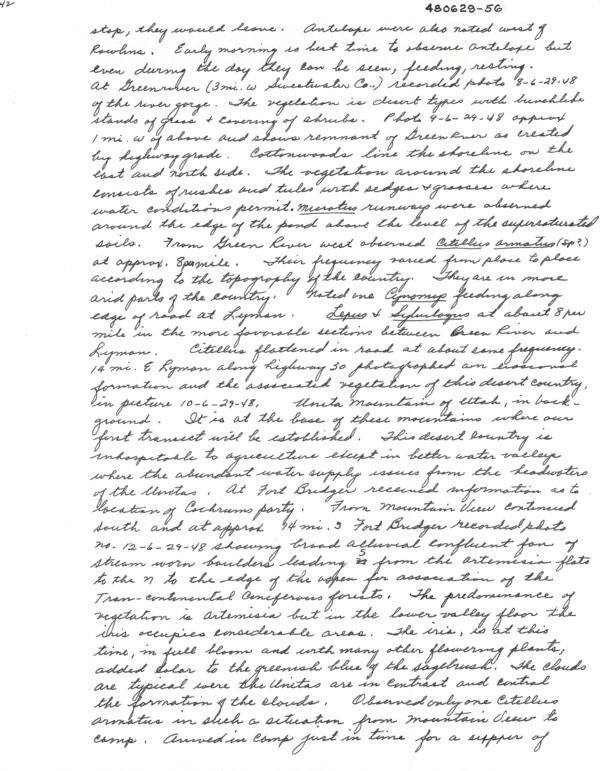 42
480629-56
stop, they would leave. Antelope were also noted west of
Rawlins. Early morning is best time to observe antelope but
even during the day they can be seen, feeding, resting.
At Greenriver (3 mi. w Sweetwater Co.,) recorded photo 8-6-29-48
of the river gorge. The vegetation is desert types with bunchlike
stands of grass & covering of shrubs. Photo 9-6-29-48 approx
1 mi. w of above and shows remnant of Green River as created
by highway grade. Cottonwoods line the shoreline on the
east and north side. The vegetation around the shoreline
consists of rushes and tules with sedges & grasses where
water conditions permit. Microtus runways were observed
around the edge of the pond above the level of the supersaturated
soils. From Green River west observed Citellus armatus (sp?)
at approx. 8 per mile. Their frequency varied from place to place
according to the topography of the country. They are in more
arid parts of the country. Noted one Cynomys feeding along
edge of road at Lyman. Lepus & Sylvilagus at about 8 per
mile in the more favorable sections between Green River and
Lyman. Citellus flattened in road at about same frequency.
14 mi. E Lyman along highway 30 photographed an erosional
formation and the associated vegetation of this desert country,
in picture 10-6-29-48, Uinta Mountain of Utah, in back-
ground. It is at the base of these mountains where our
first transect will be established. This desert country is
inhospitable to agriculture except in better water valleys
where the abundant water supply issues from the headwaters
of the Unitas. At Fort Bridger received information as to
location of Cochrums party. From Mountain View continued
south and at approx 14 mi. S Fort Bridger recorded photo
no. 12-6-29-48 showing broad alluvial confluent fan of
stream worn boulders leading S from the artemisia flats
to the n to the edge of the aspen fir association of the
Tran-continental Coniferous forests. The predominance of
vegetation is Artemisia but in the lower valley floor the
iris occupies considerable areas. The iris, is at this
time, in full bloom and with many other flowering plants,
added color to the greenish blue of the sagebrush. The clouds
are typical were the Unitas are in contrast and control
the formation of the clouds. Observed only one Citellus
armatus in such a situation from mountain View to
camp. Arrived in camp just in time for a supper of